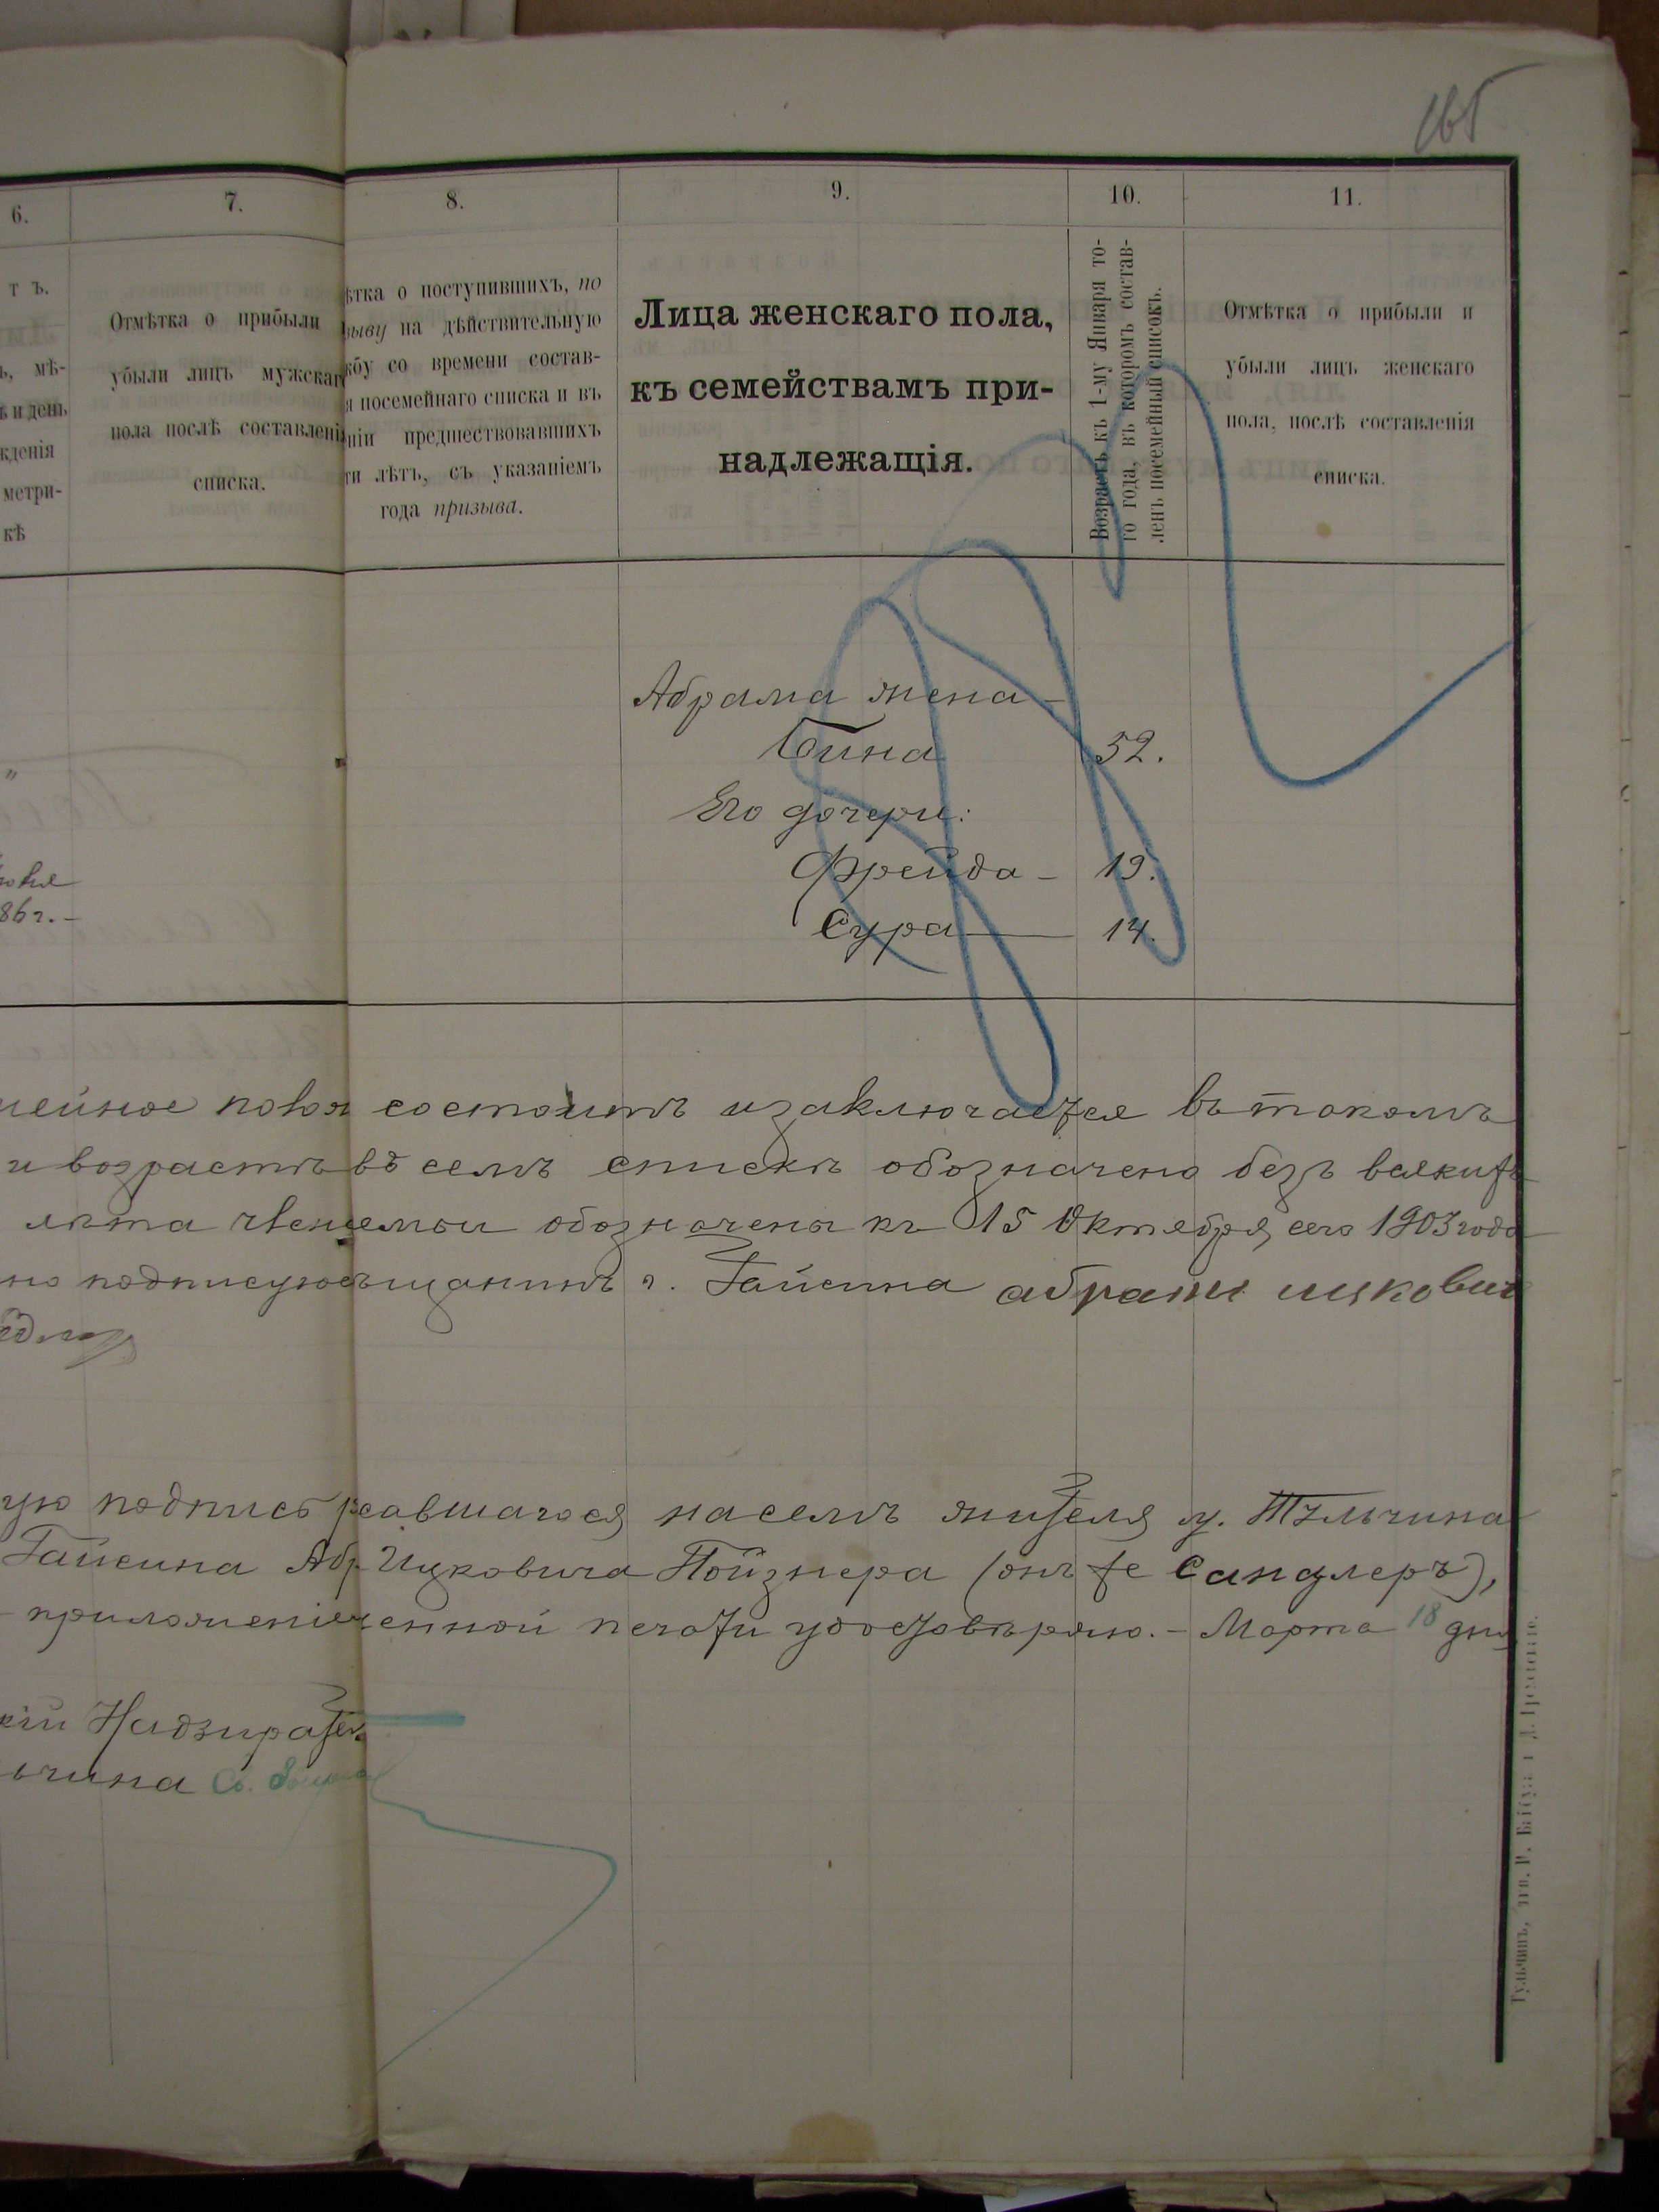 165
6.
7.
8.
9.
10.
11.
тъ.
ъ, мѣ-
ъ и день
жденія
метри-
кѣ
Отмѣтка о прибыли
убыли лицъ мужскаг
пола послѣ составлені
списка.
ѣтка о поступившихъ, по
зыву на дѣйствительную
жбу со времени состав-
я посемейнаго списка и въ
ніи предшествовавшихъ
ти лѣтъ, съ указаніемъ
года призыва.
Лица женскаго пола,
къ семействамъ при-
надлежащія.
Возрастъ къ 1-му Января то-
го года, въ которомъ состав-
ленъ посемейный списокъ.
Отмѣтка о прибыли и
убыли лицъ женскаго
пола, послѣ составленія
списка.
Абрама жена –
52.
Его дочери:
Фрейда – 19.
Сура — 14.
86 г. –
состоитъ и заключается въ такомъ
и возрастѣ въ семъ спискѣ обозначено безъ всякихъ
лѣта обозначены къ 15 Октября, сего 1903 года
но подписуюсь г. Гайсина абрамъ ицкович
ую подпис на семъ жителя м. Тульчина
Гайсина Абр Ицковича Пойзнера (онъ же Сандлеръ),
приложеніе енной печати удостовѣряю. – Марта 18 дня
кій Надзирател
ьчина
Тульчинъ, тип.